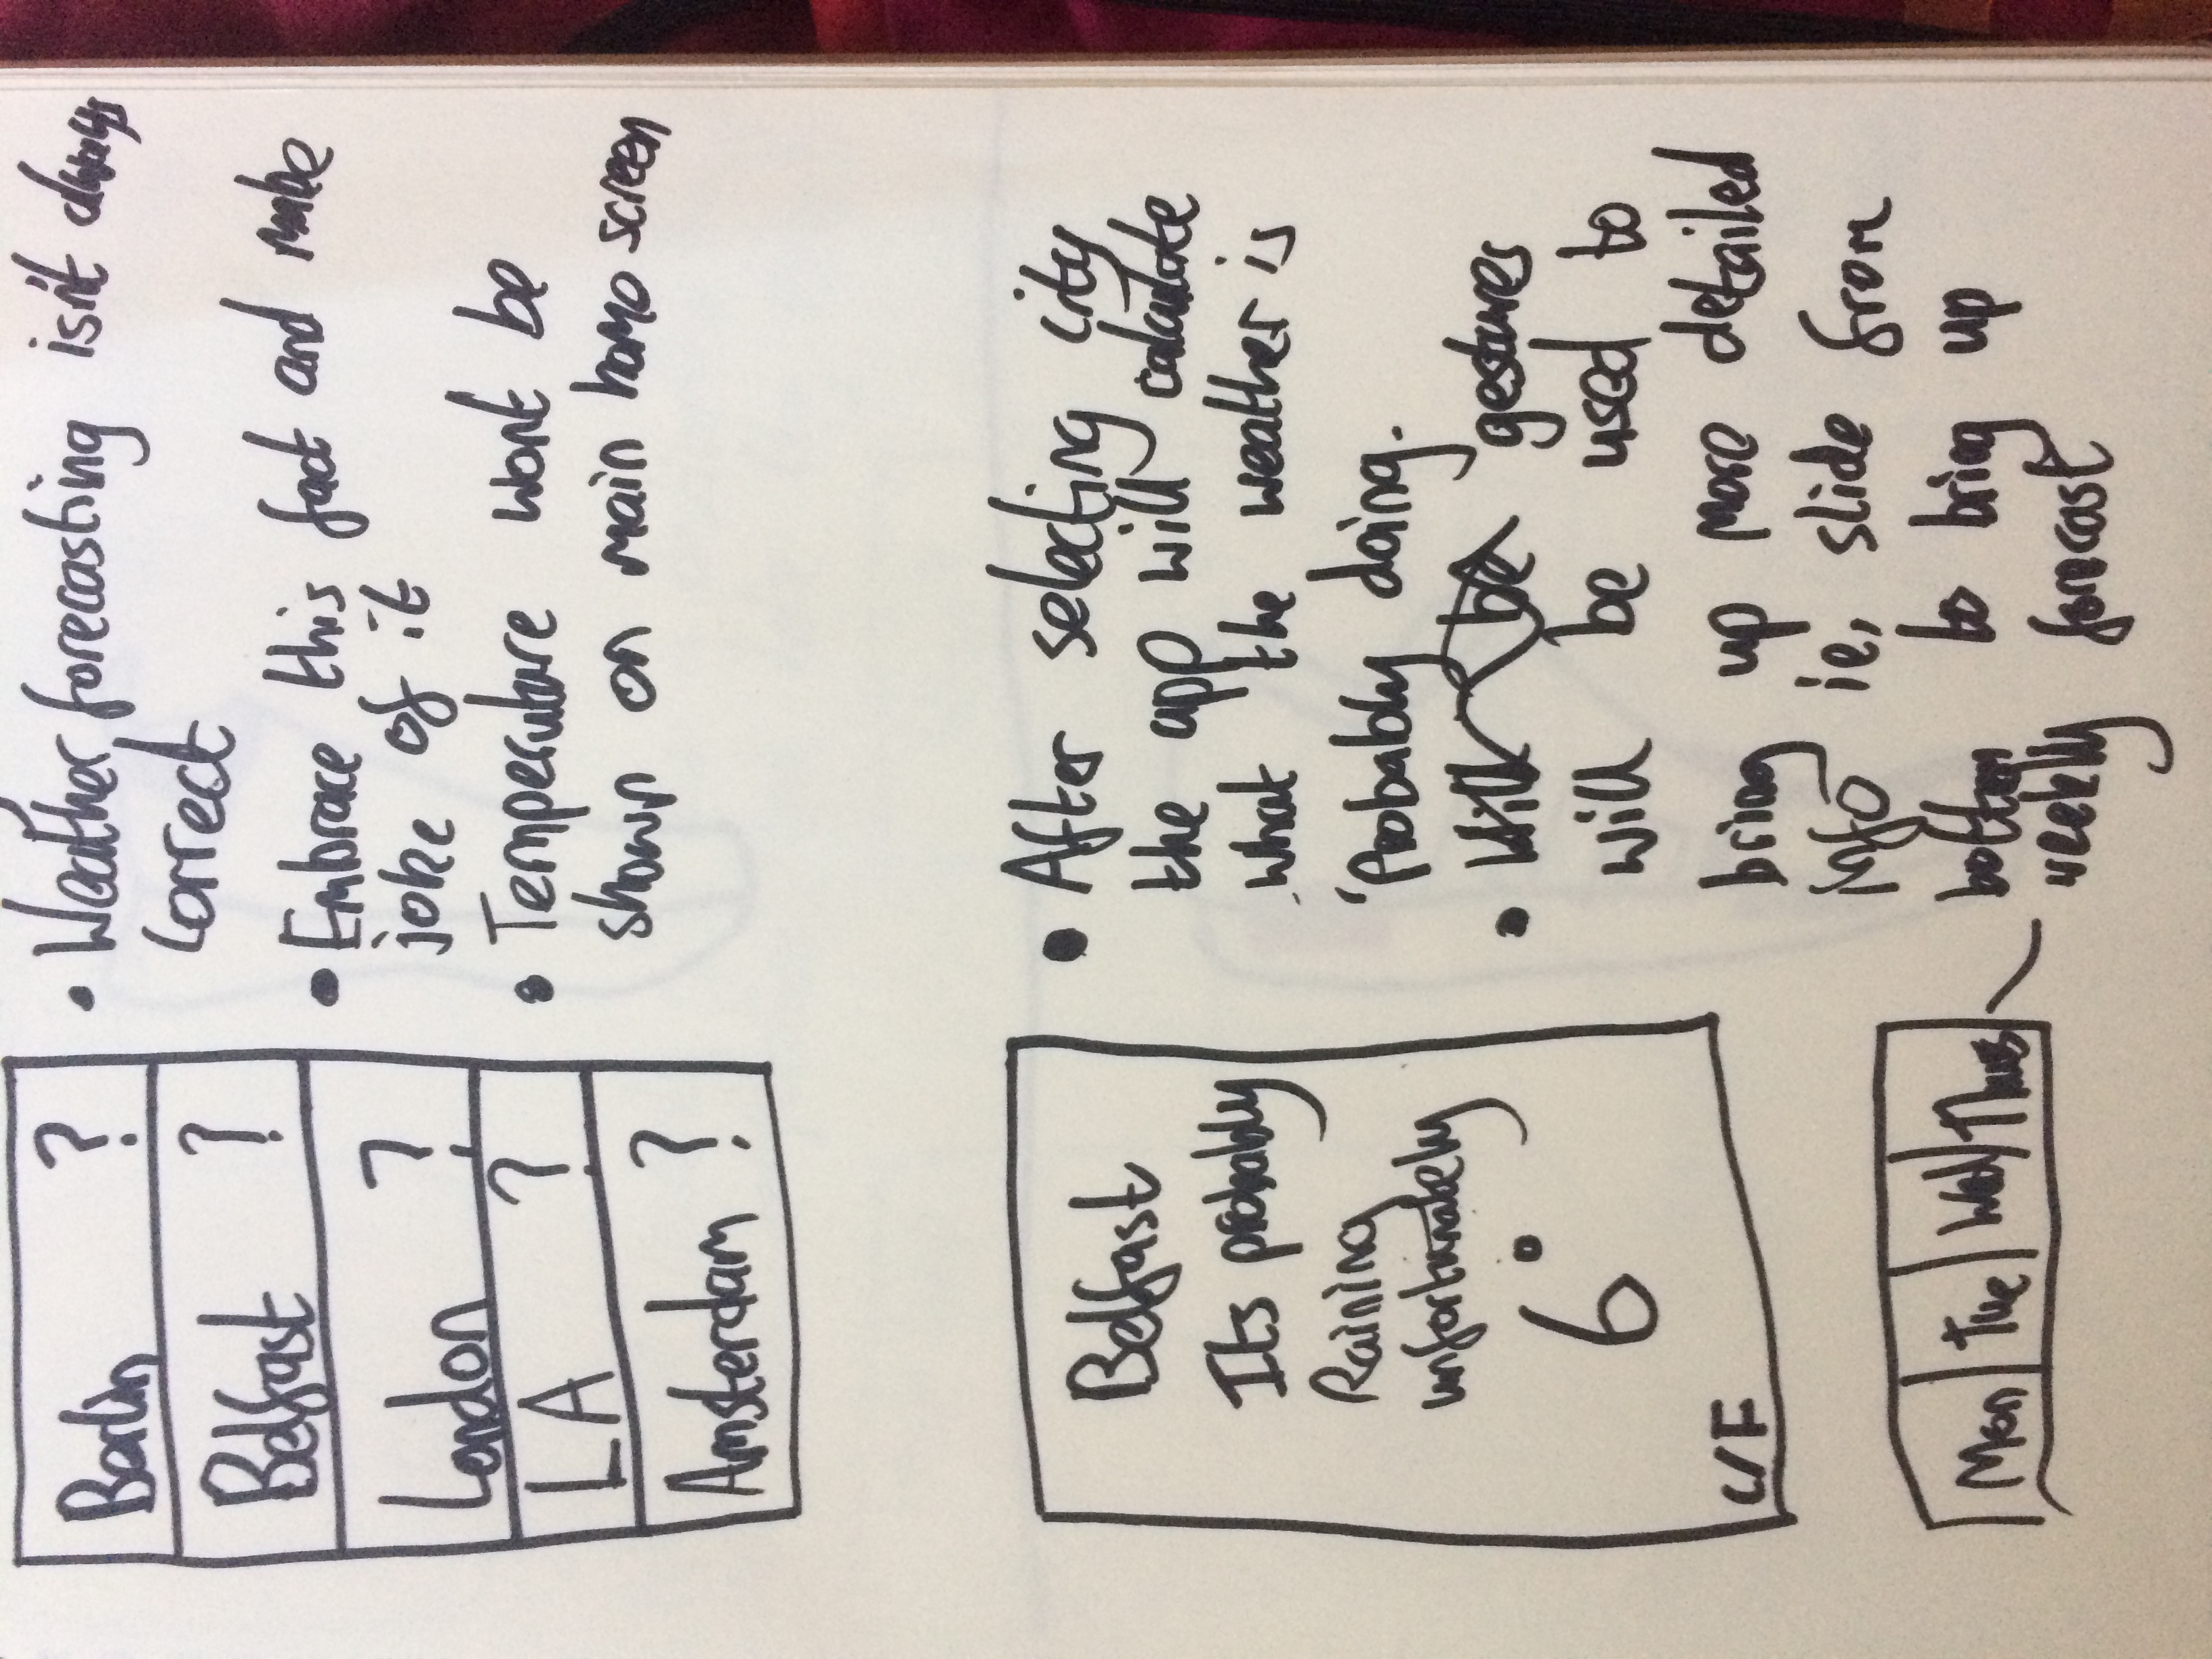 Berlin ?
Belfast ?
London ?
LA ?
Amsterdam ?
• Weather forecasting isn't always
correct
• Embrace this fact and make
joke of it
• Temperature wont be
shown on main home screen
Belfast
Its probably
Raining
unfortunately
6°
C/F
Mon Tue Wed Thurs
• After selecting city
the app will calculate
what the weather is
'Probably doing.
• Will be gestures
will be used to
bring up more detailed
info ie, slide from
bottom to bring up
weekly forecast